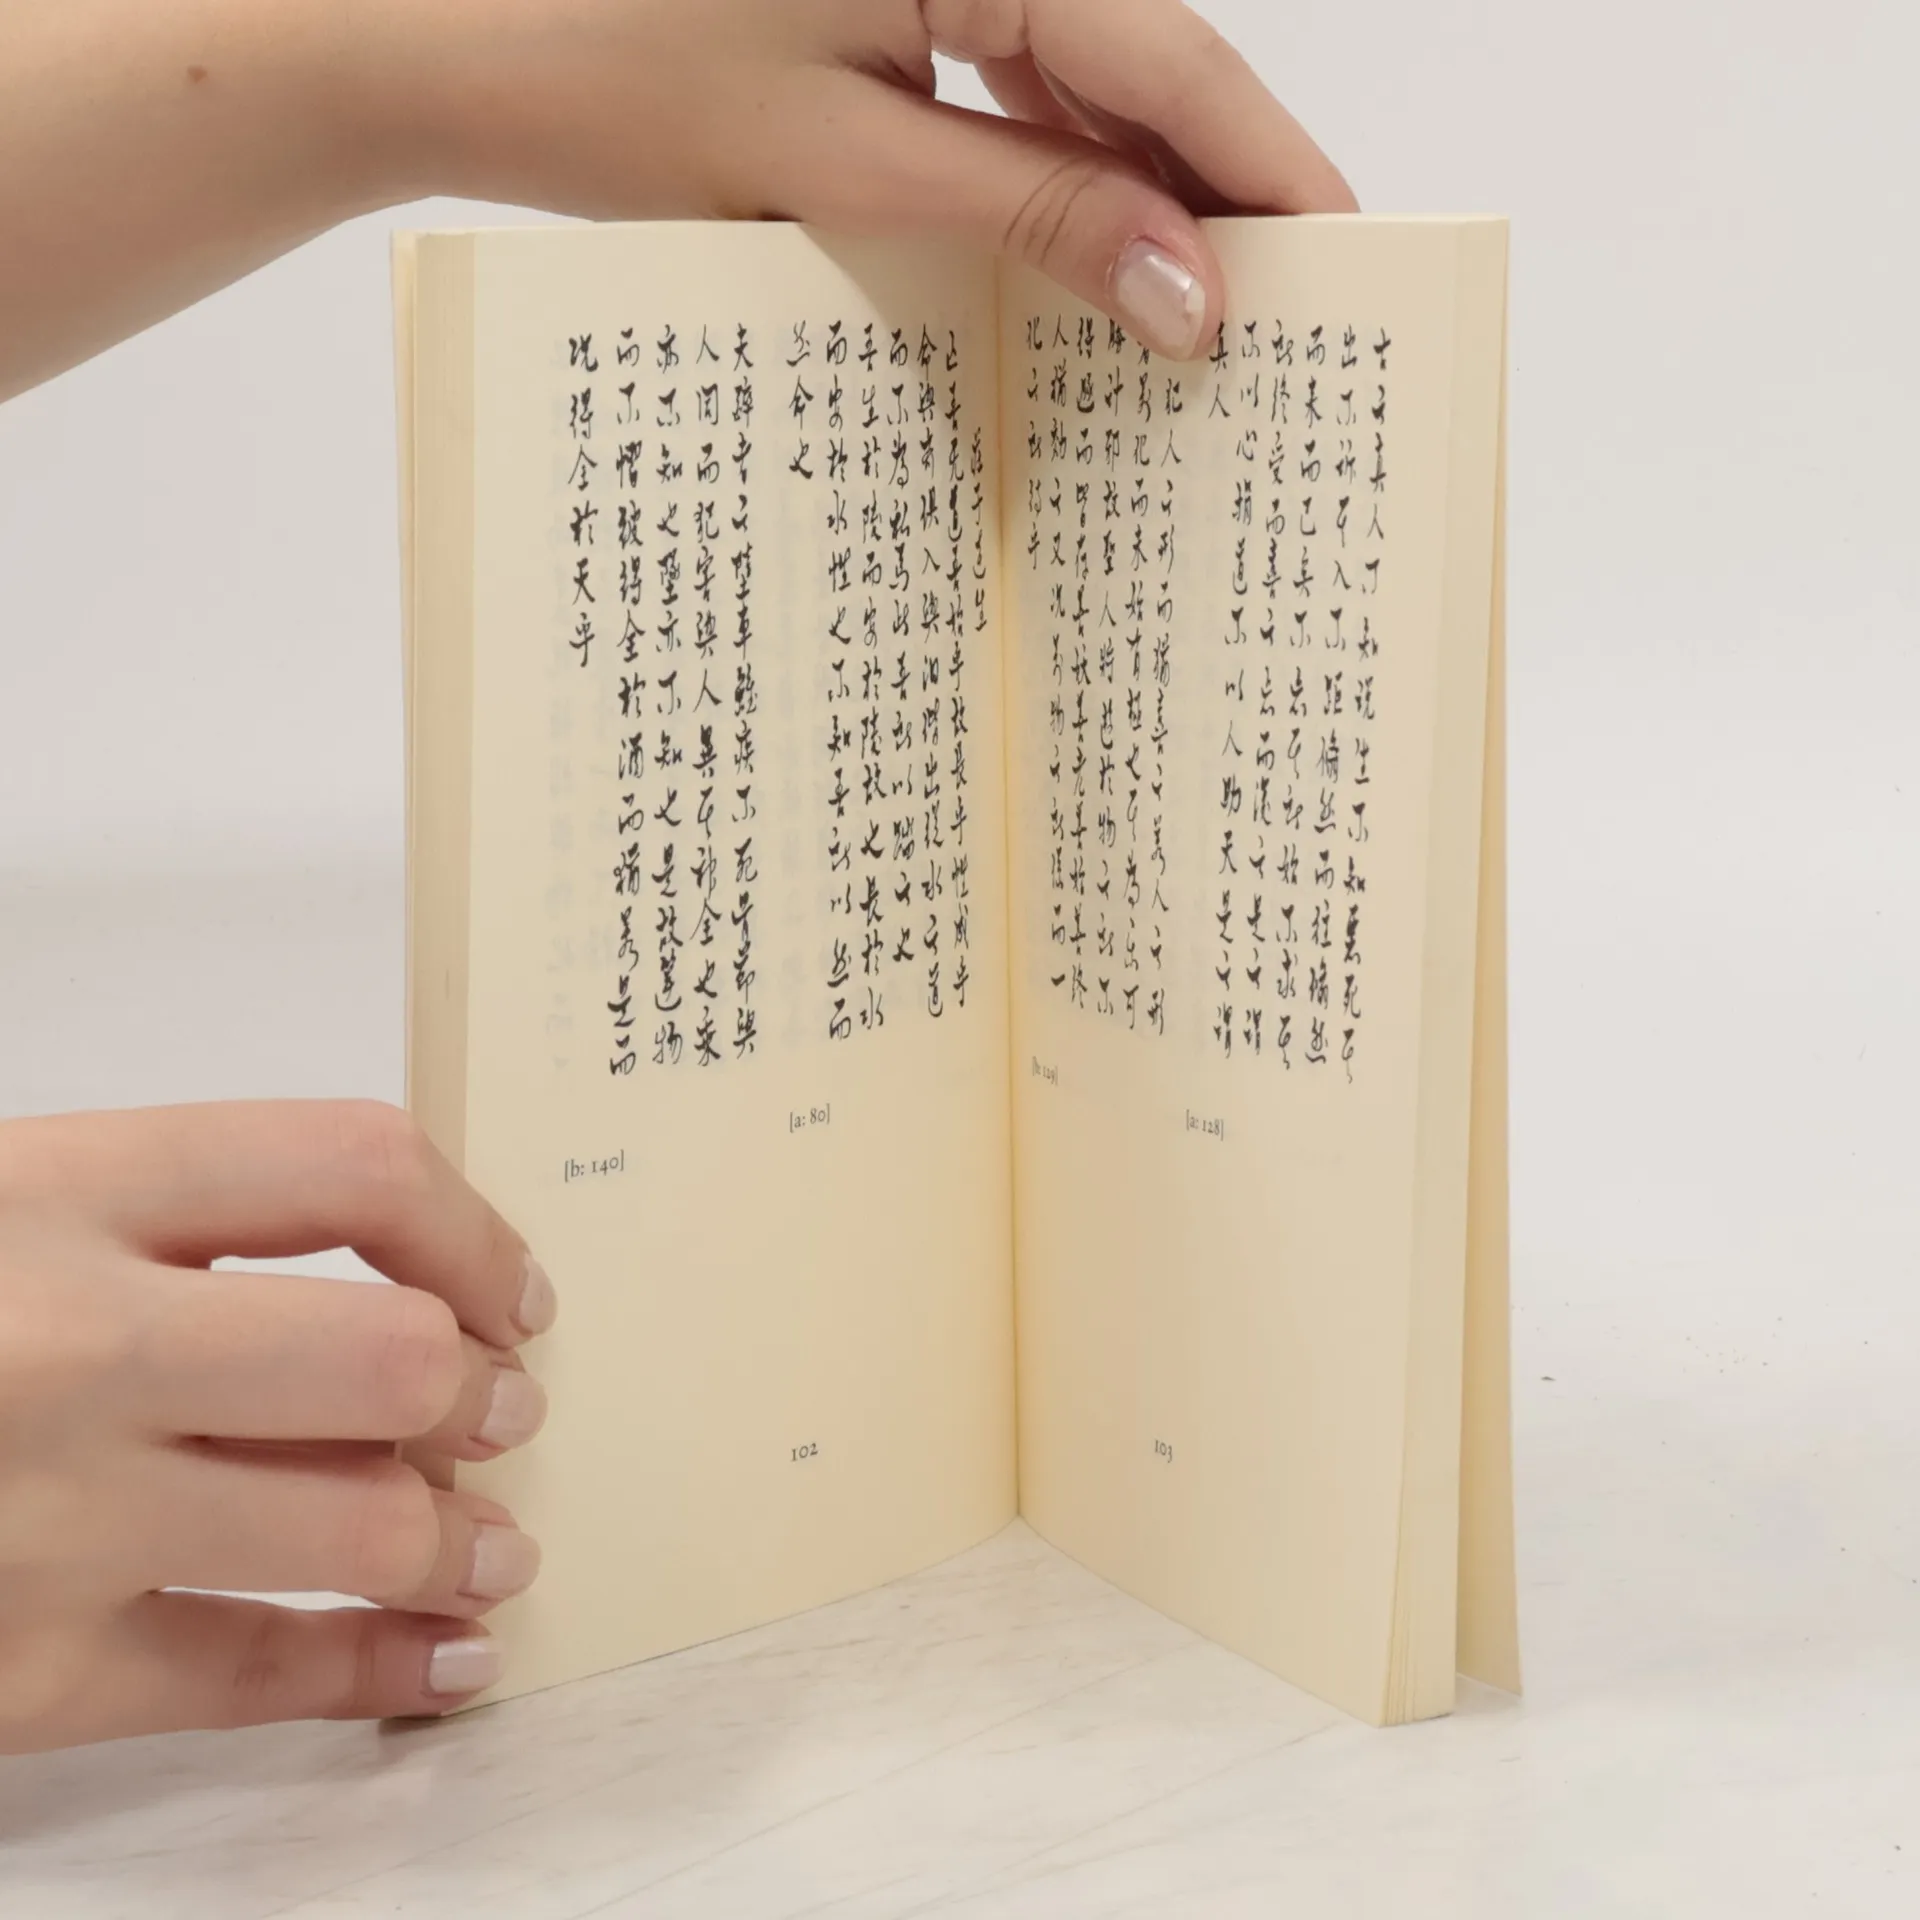 莊子達生
曰吾无道吾始乎故長乎性成乎
命與齊俱入與汩偕出從水之道
而不為私焉此吾所以蹈之也
吾生於陵而安於陵故也長於水
而安於水性也不知吾所以然而
然命也
[a: 80]
夫醉者之墜車雖疾不死骨節與
人同而犯害與人異其神全也乘
亦不知也墜亦不知也是故遻物
而不慴彼得全於酒而猶若是而
況得全於天乎
[b: 140]
102
古之真人不知說生不知惡死其
出不訢其入不距翛然而往翛然
而來而已矣不忘其所始不求其
所終受而喜之忘而復之是之謂
不以心捐道不以人助天是之謂
真人
[a: 128]
犯人之形而猶喜之若人之形
者萬化而未始有極也其為樂可
勝計邪故聖人將遊於物之所不
得遯而皆存善妖善老善始善終
人猶效之又況萬物之所係而一
化之所待乎
[b: 129]
103